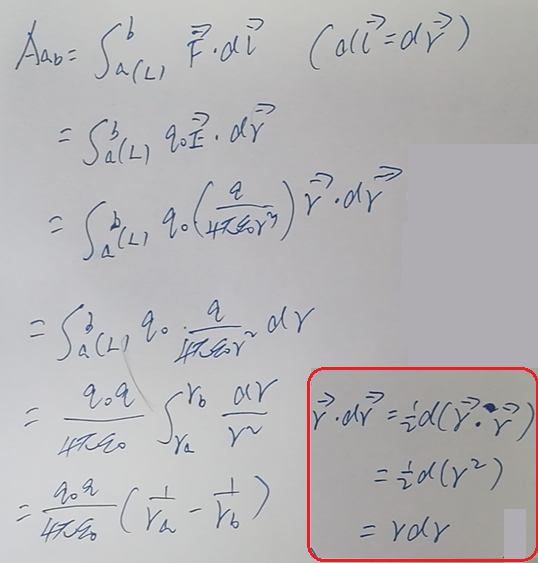 A_ab = ∫_a(L)^b F⃗·dl⃗ (dl⃗ = dr⃗)
= ∫_a(L)^b q₀E⃗·dr⃗
= ∫_a(L)^b q₀(q/4πε₀r³) r⃗·dr⃗
= ∫_a(L)^b q₀·q/4πε₀r² dr
= q₀q/4πε₀ ∫_ra^rb dr/r²
= q₀q/4πε₀ (1/r_a − 1/r_b)
r⃗·dr⃗ = ½d(r⃗·r⃗)
= ½d(r²)
= rdr